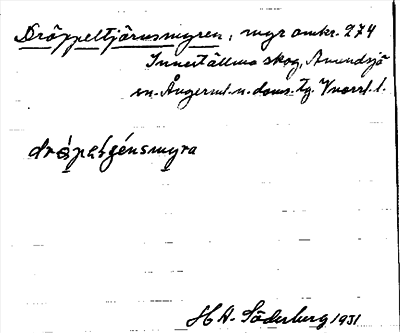 Dräppeltjärnsmyren, myr omkr. 274
Innertällmo skog, Anundsjö
sn. Ångerml. n. doms. tg. Vnorrl. l.
HA. Söderberg 1931